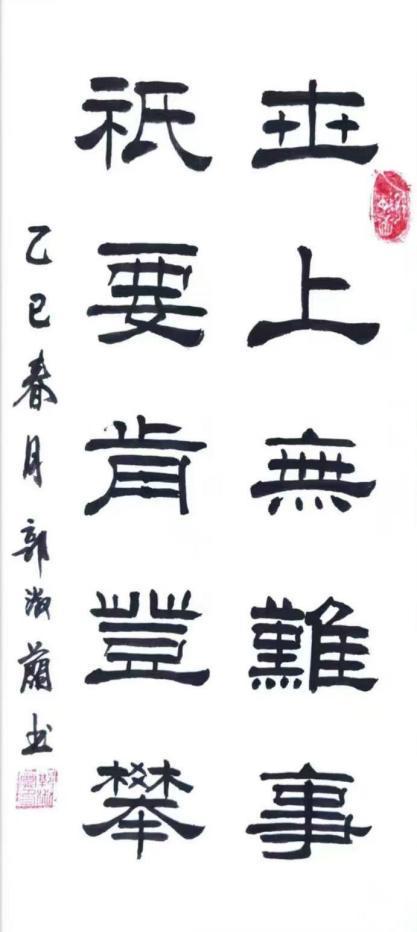 世上無難事
祇要肯登攀
乙巳春月郭淑蘭书